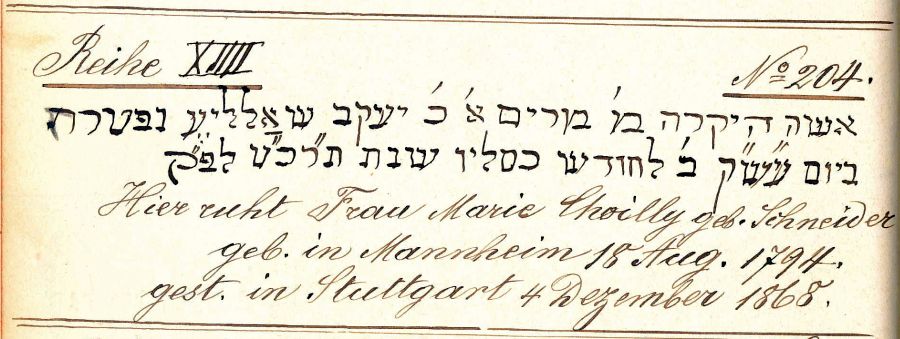 Reihe XIIII No 204.
אשה היקרה מ׳ מרים א׳ כ׳ יעקב שאלליע נפטרת
ביום עש״ק כ׳ לחודש כסליו שנת תרכ״ט לפ״ק
Hier ruht Frau Marie Choilly geb. Schneider
geb. in Mannheim 18 Aug. 1794.
gest. in Stuttgart 4 Dezember 1868.